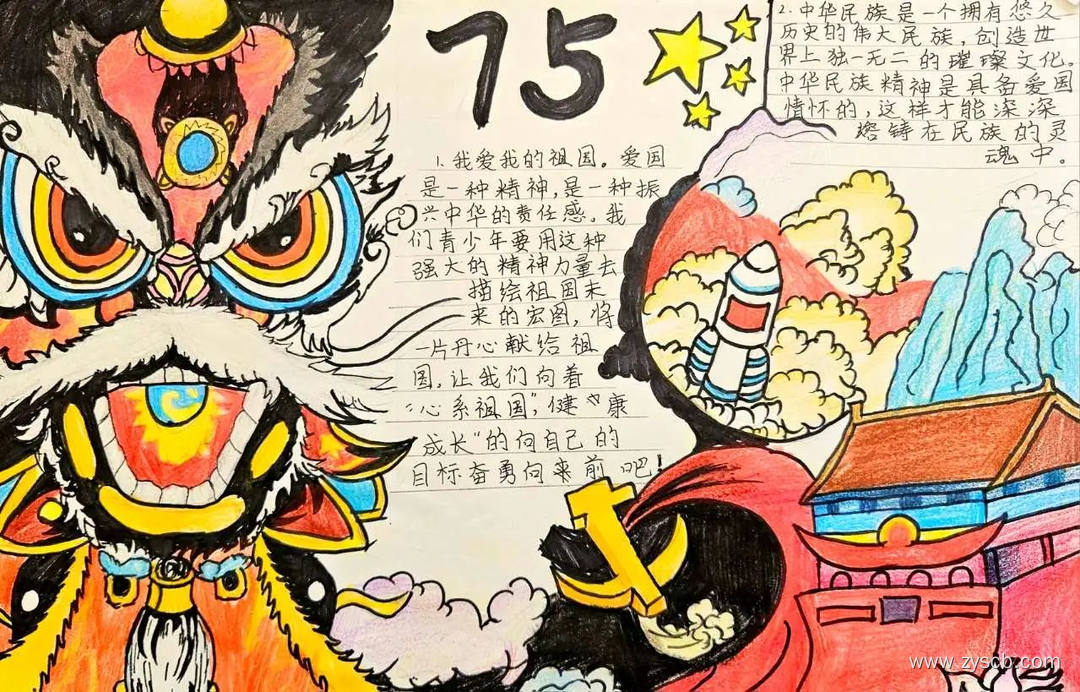 75
1.我爱我的祖国。爱国
是一种精神,是一种振
兴中华的责任感。我
们青少年要用这种
强大的精神力量去
描绘祖国未
来的宏图,将
一片丹心献给祖
国,让我们向着
“心系祖国”,健
康
成长“的向自己的
目标奋勇向来前吧!
2.中华民族是一个拥有悠久
历史的伟大民族,创造世
界上独一无二的璀璨文化。
中华民族精神是具备爱国
情怀的,这样才能深深
熔铸在民族的灵
魂中。
www.zyscb.com